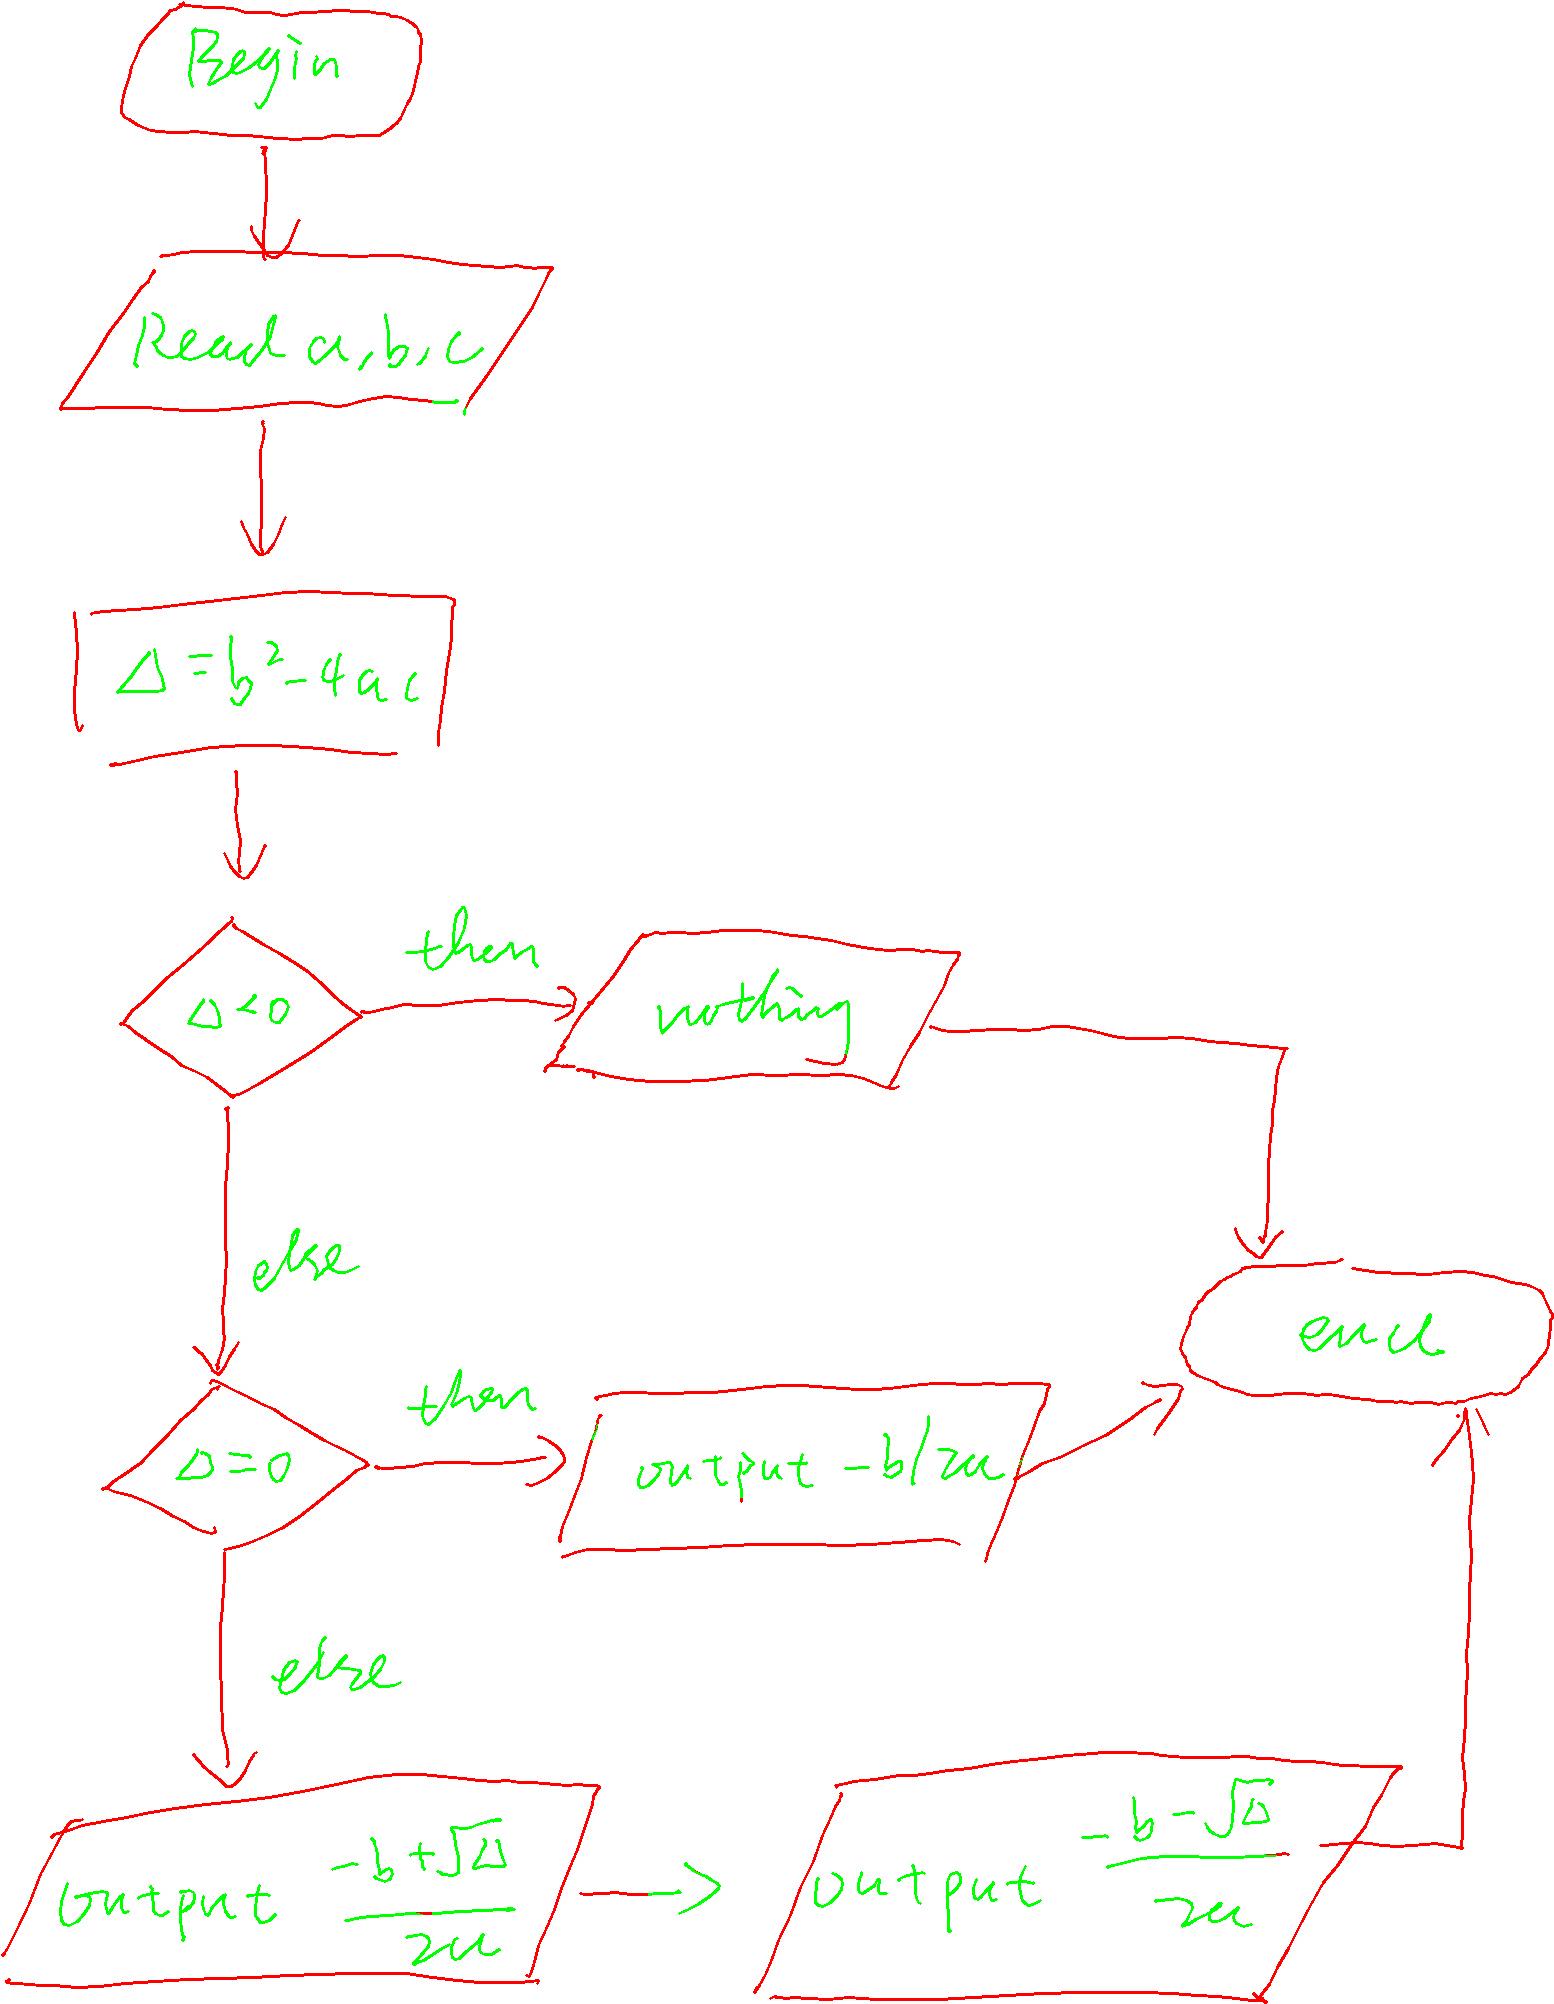 Begin
Read a, b, c
Δ = b² - 4ac
then
Δ < 0
nothing
else
end
then
Δ = 0
output -b/2a
else
output (-b + √Δ)/2a
output (-b - √Δ)/2a